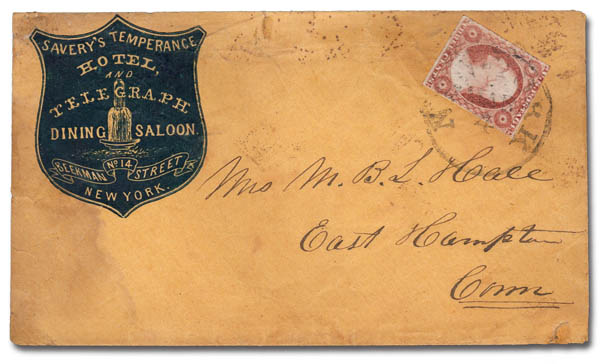 SAVERY'S TEMPERANCE
HOTEL,
AND
TELEGRAPH
DINING SALOON.
BEEKMAN No 14 STREET
NEW YORK.
Mrs M. B. L. Hall
East Hampton
Conn